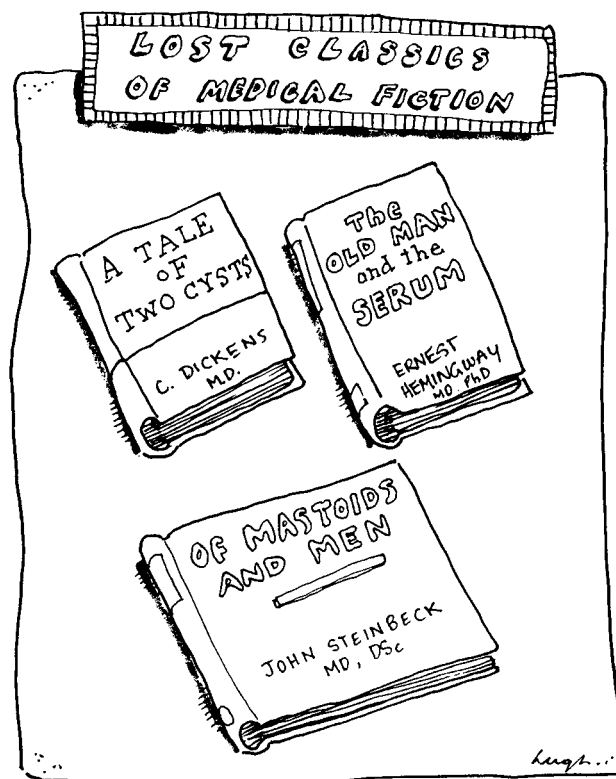 LOST CLASSICS
OF MEDICAL FICTION
A TALE
OF
TWO CYSTS
C. DICKENS
M.D.
The
OLD MAN
and the
SERUM
ERNEST
HEMINGWAY
MD. PhD
OF MASTOIDS
AND MEN
JOHN STEINBECK
MD, DSc